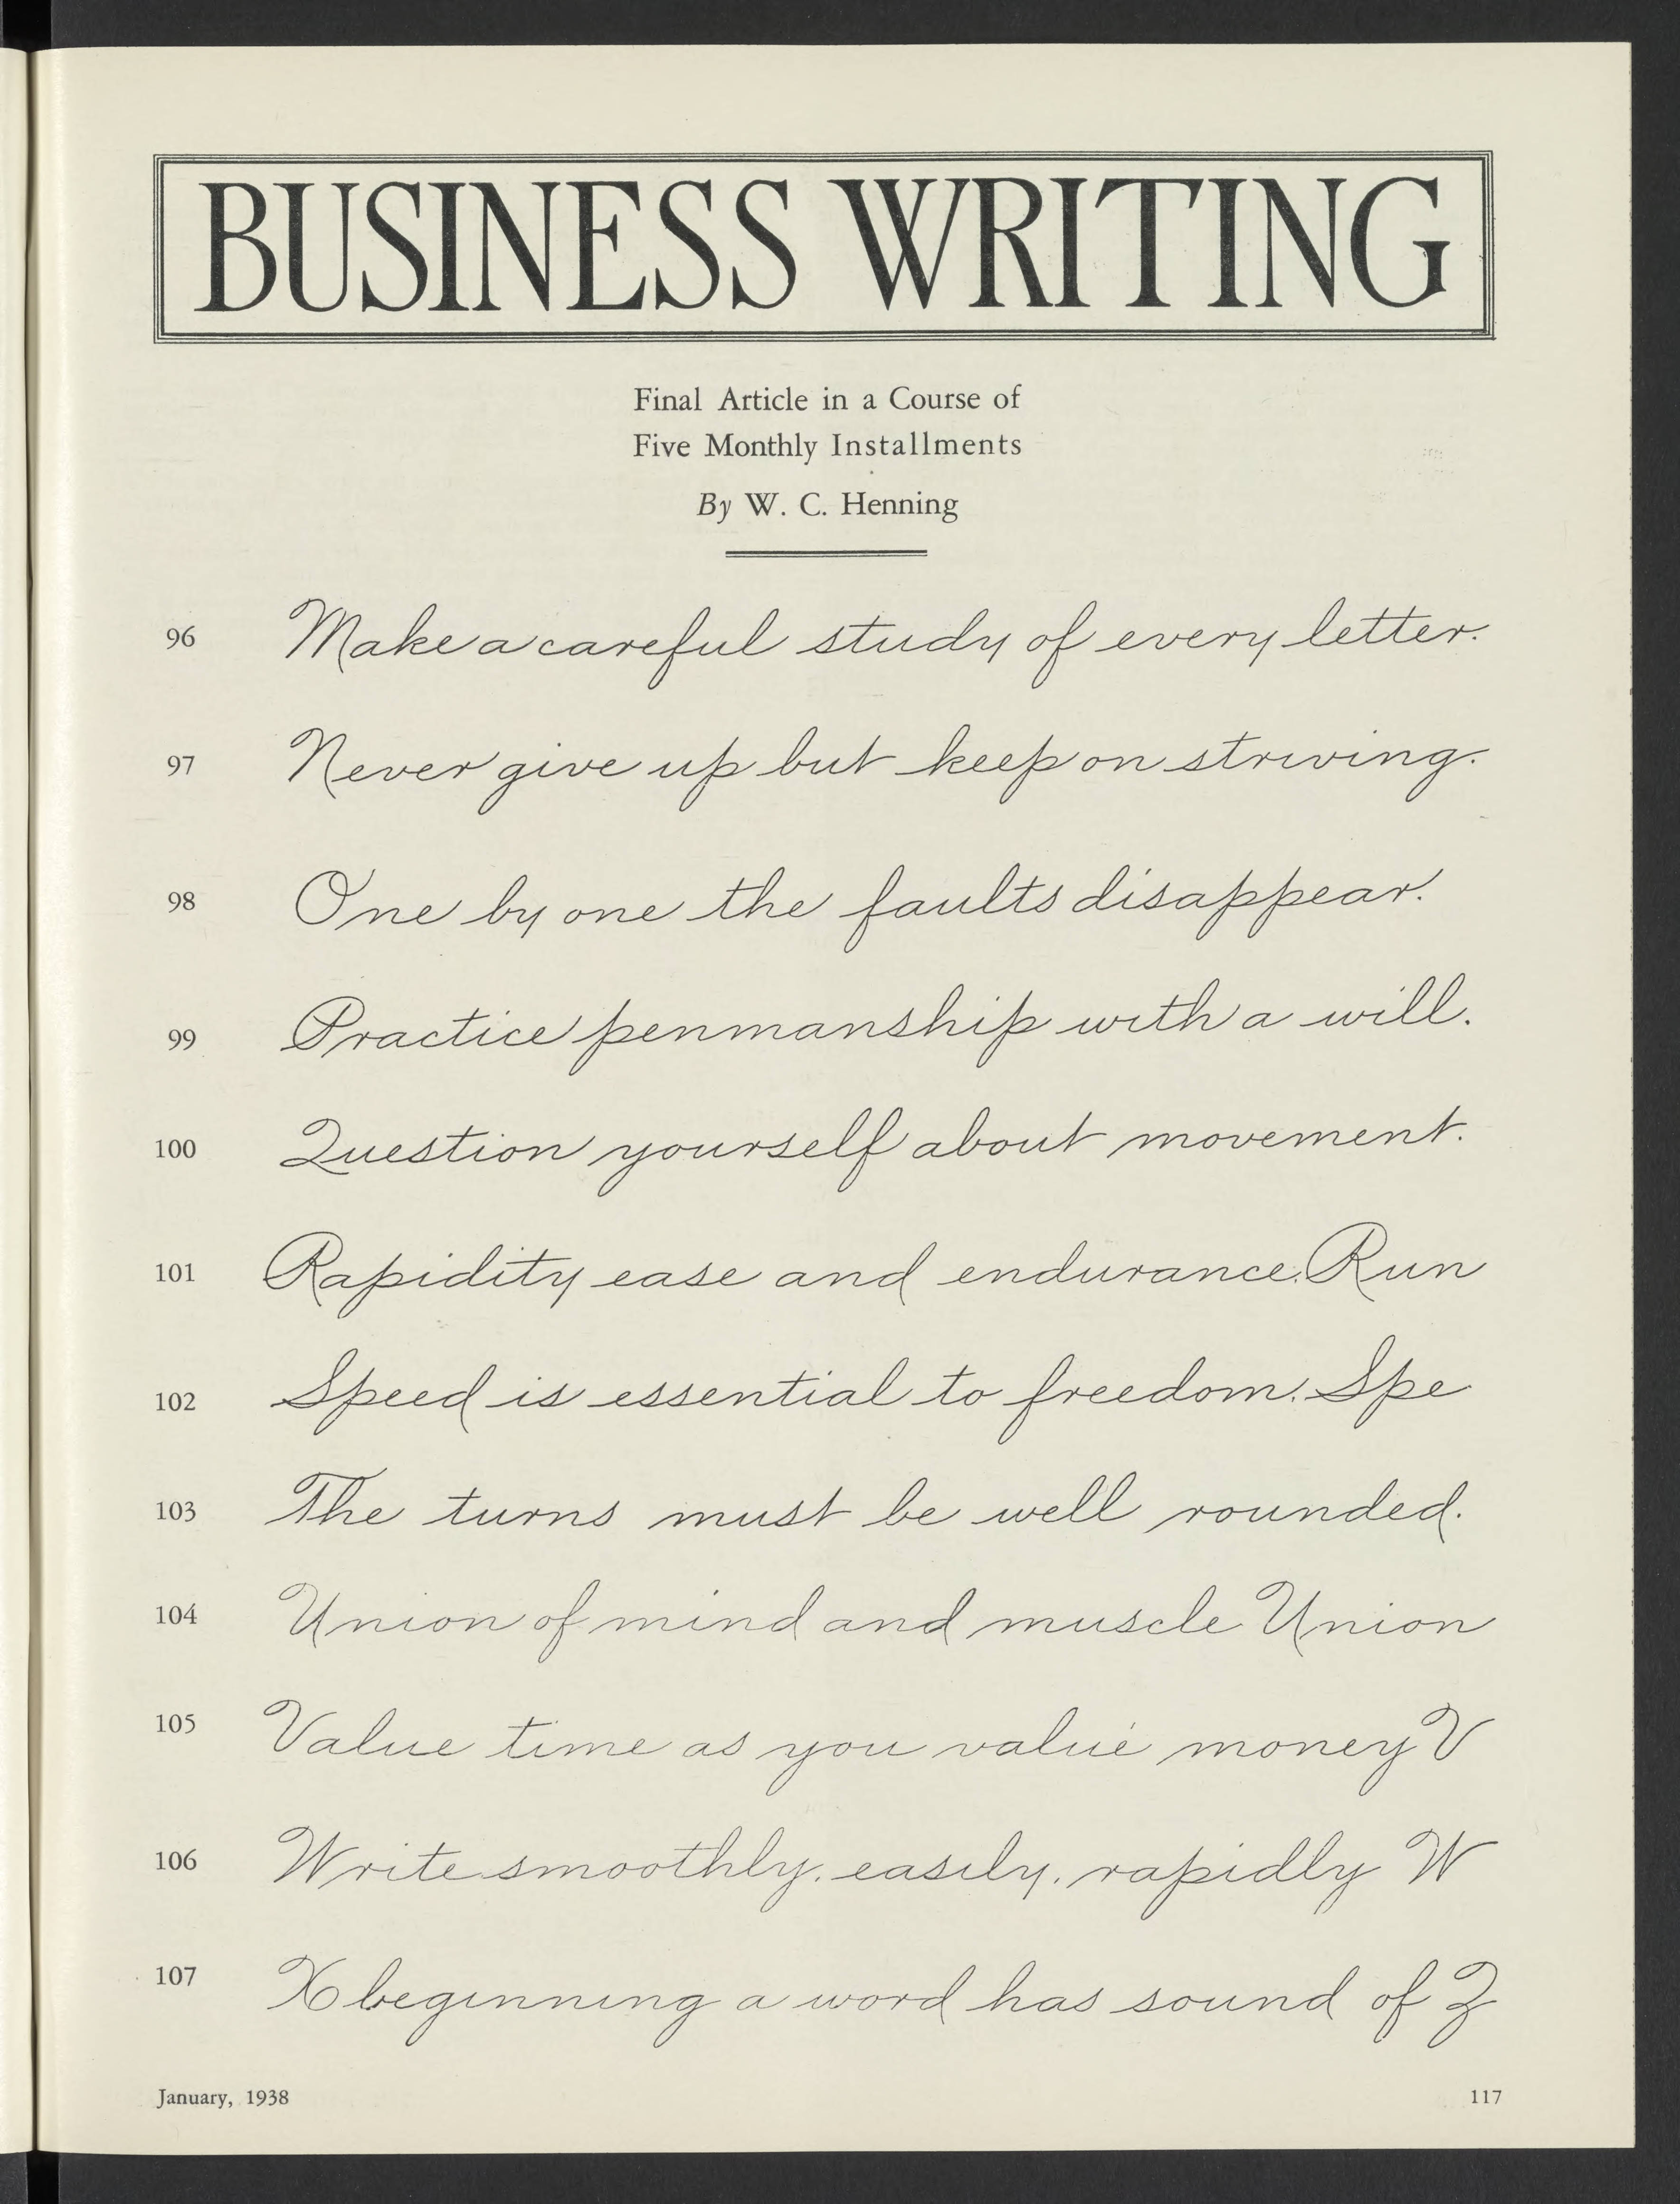 BUSINESS WRITING
Final Article in a Course of
Five Monthly Installments
By W. C. Henning
96 Make a careful study of every letter.
97 Never give up but keep on striving.
98 One by one the faults disappear.
99 Practice penmanship with a will.
100 Question yourself about movement.
101 Rapidity ease and endurance. Run
102 Speed is essential to freedom. Spe
103 The turns must be well rounded.
104 Union of mind and muscle Union
105 Value time as you value money V
106 Write smoothly, easily, rapidly W
107 X beginning a word has sound of Z
January, 1938 117